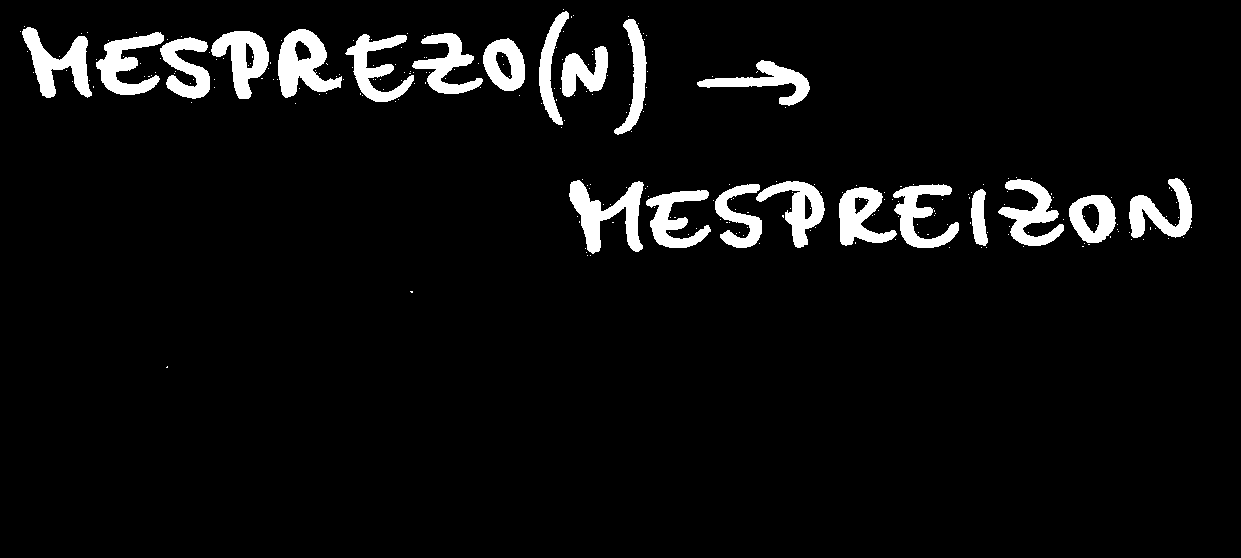 MESPREZO(N) →
MESPREIZON